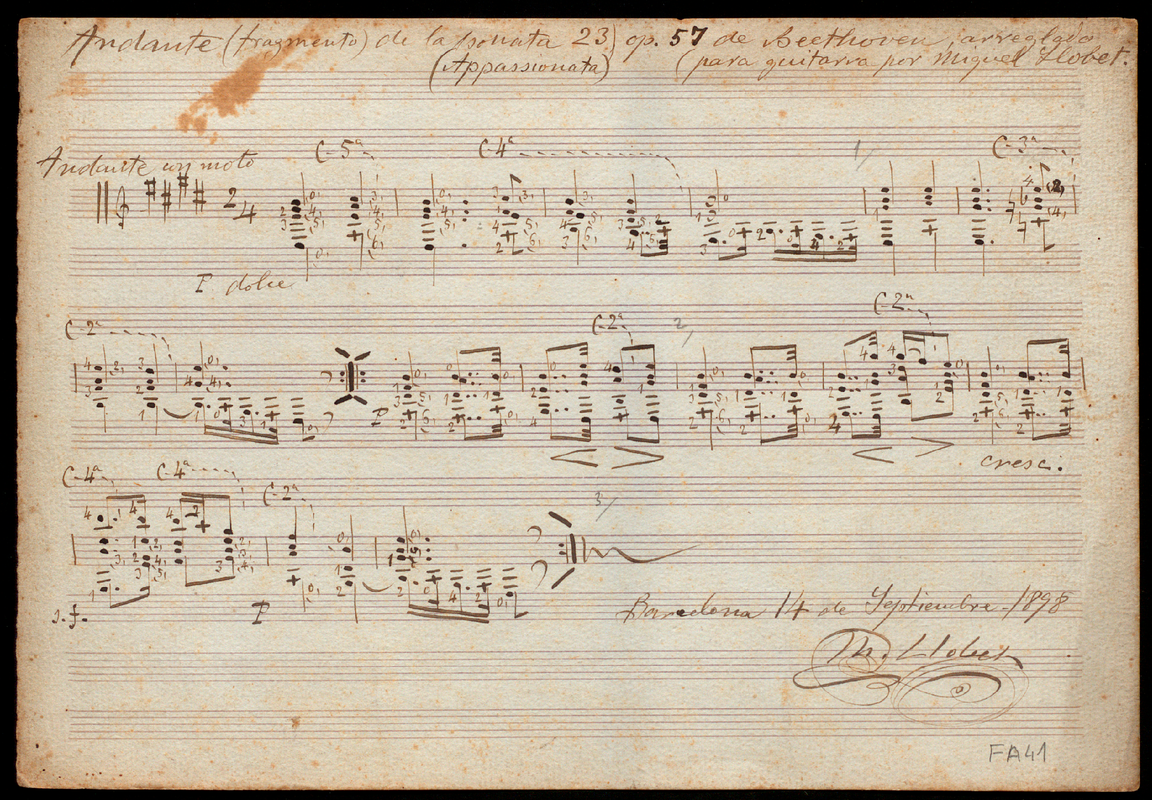 Andante (fragmento) de la sonata 23 op. 57 de Beethoven, arreglado
(Appassionata) (para guitarra por Miguel Llobet.
Andante con moto
C-5ª
C-4ª
1/
C-3ª
2/4
P dolce
C-2ª
C-2ª
2/
C-2ª
P
cresc.
C-4ª
C-4ª
C-2ª
3/
s.f.
P
Barcelona 14 de Septiembre - 1898
M. Llobet
FA41